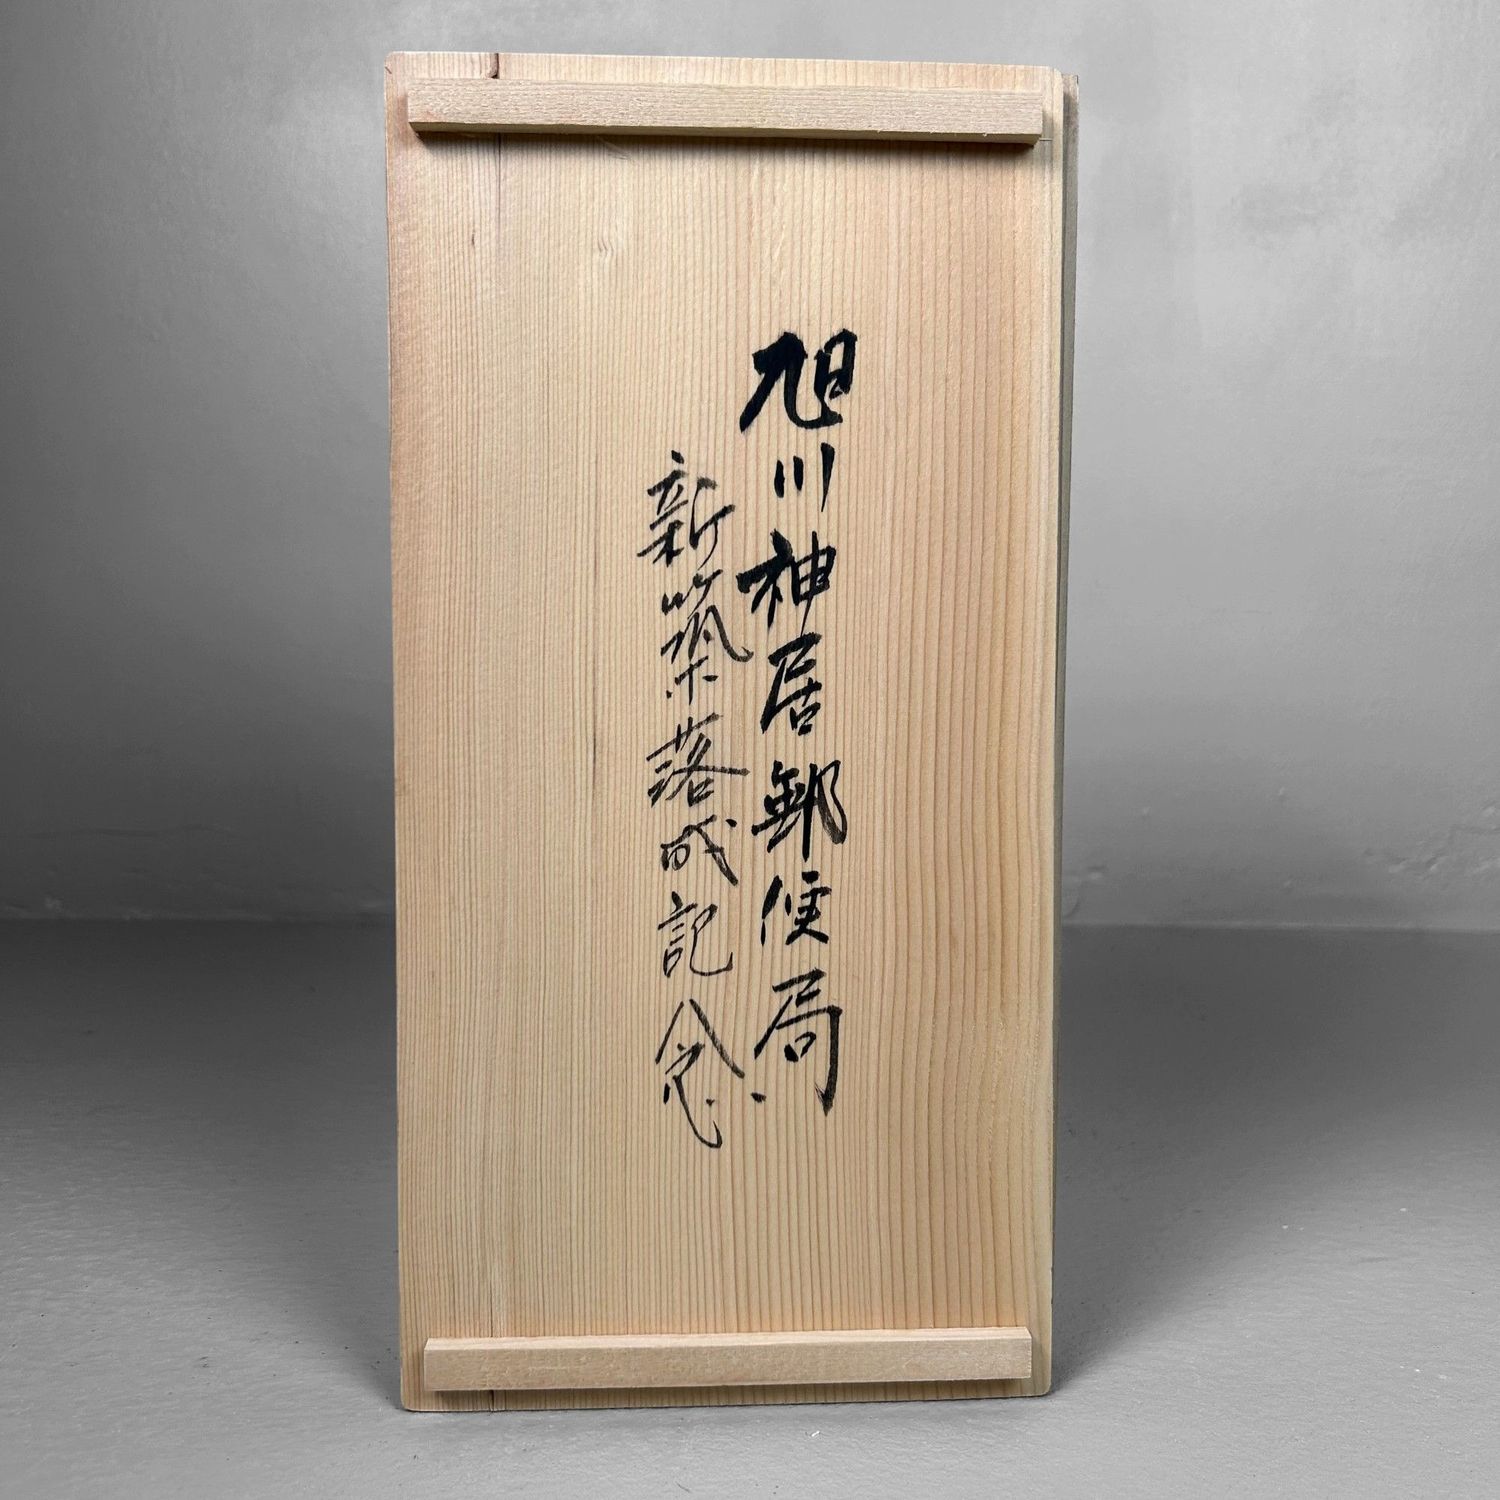 旭川神居郵便局
新築落成記念